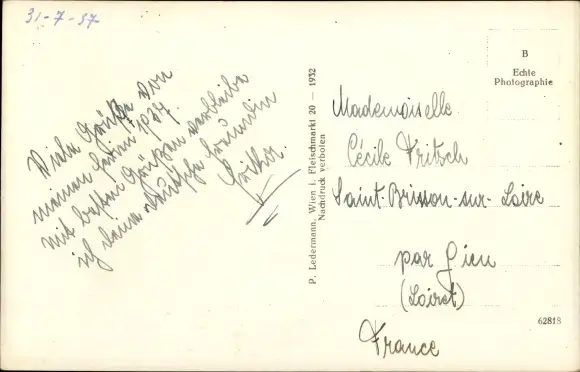 31-7-37
Viele Grüße von
meinen Ferien 1937.
mit besten Grüßen verbleibe
ich deine deutsche Freundin
B
Echte
Photographie
P. Ledermann, Wien I. Fleischmarkt 20 — 1932
Nachdruck verboten
Mademoiselle
Cécile Fritsch
Saint-Brisson-sur-Loire
par Gien
(Loiret)
France
62818